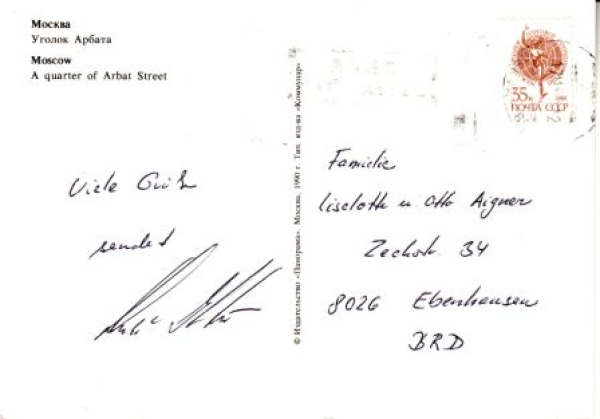 Москва
Уголок Арбата
Moscow
A quarter of Arbat Street
Viele Grüße
sendet
© Издательство «Панорама». Москва, 1990 г. Тип. изд-ва «Коммунар»
35к
ПОЧТА СССР
Familie
Liselotte u. Otto Aigner
Zechstr. 34
8026 Ebenhausen
BRD